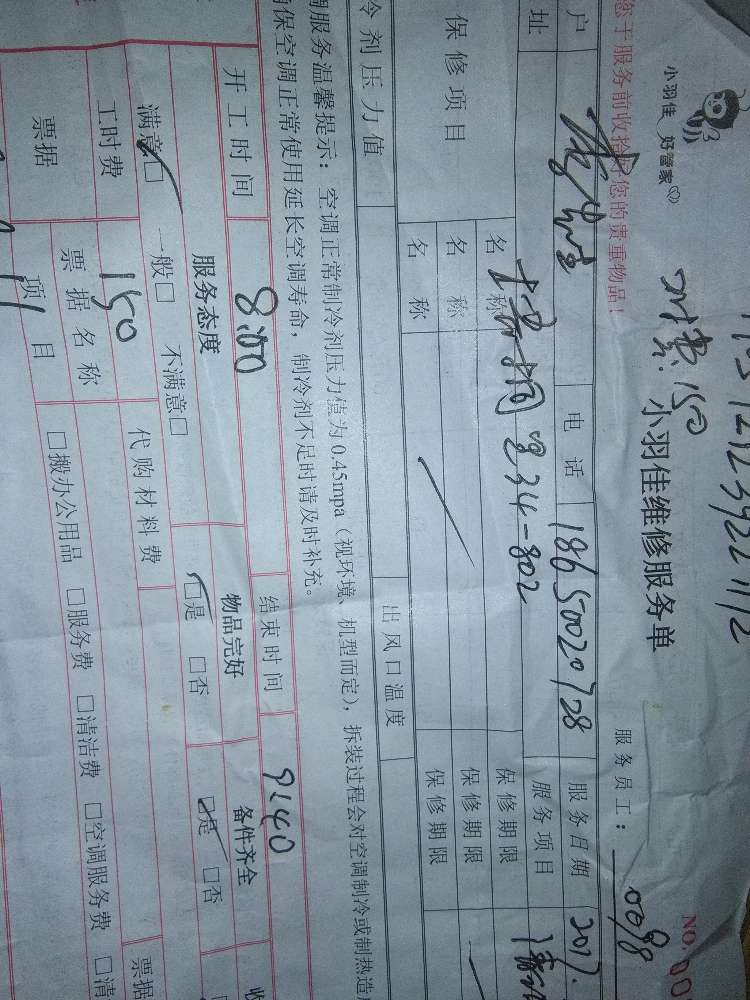 小羽佳 好管家
NO.00
付费.150
小羽佳维修服务单
服务员工：0098
您于服务前收拾好您的贵重物品！
户 电话 18650020728 服务日期 2017.
址 34-802 服务项目
保修项目 名称 保修期限
名称 保修期限
名称 保修期限
冷剂压力值 出风口温度
调服务温馨提示：空调正常制冷剂压力值为0.45mpa（视环境、机型而定），拆装过程会对空调制冷或制热造
确保空调正常使用延长空调寿命，制冷剂不足时请及时补充。
开工时间 8:00 结束时间 9:40
服务态度 物品完好 备件齐全
满意□ 一般□ 不满意□ □是 □否 □是 □否
工时费 150 代购材料费
票据 票据名称 □搬办公用品 □服务费 □清洁费 □空调服务费 □清 票据
项目